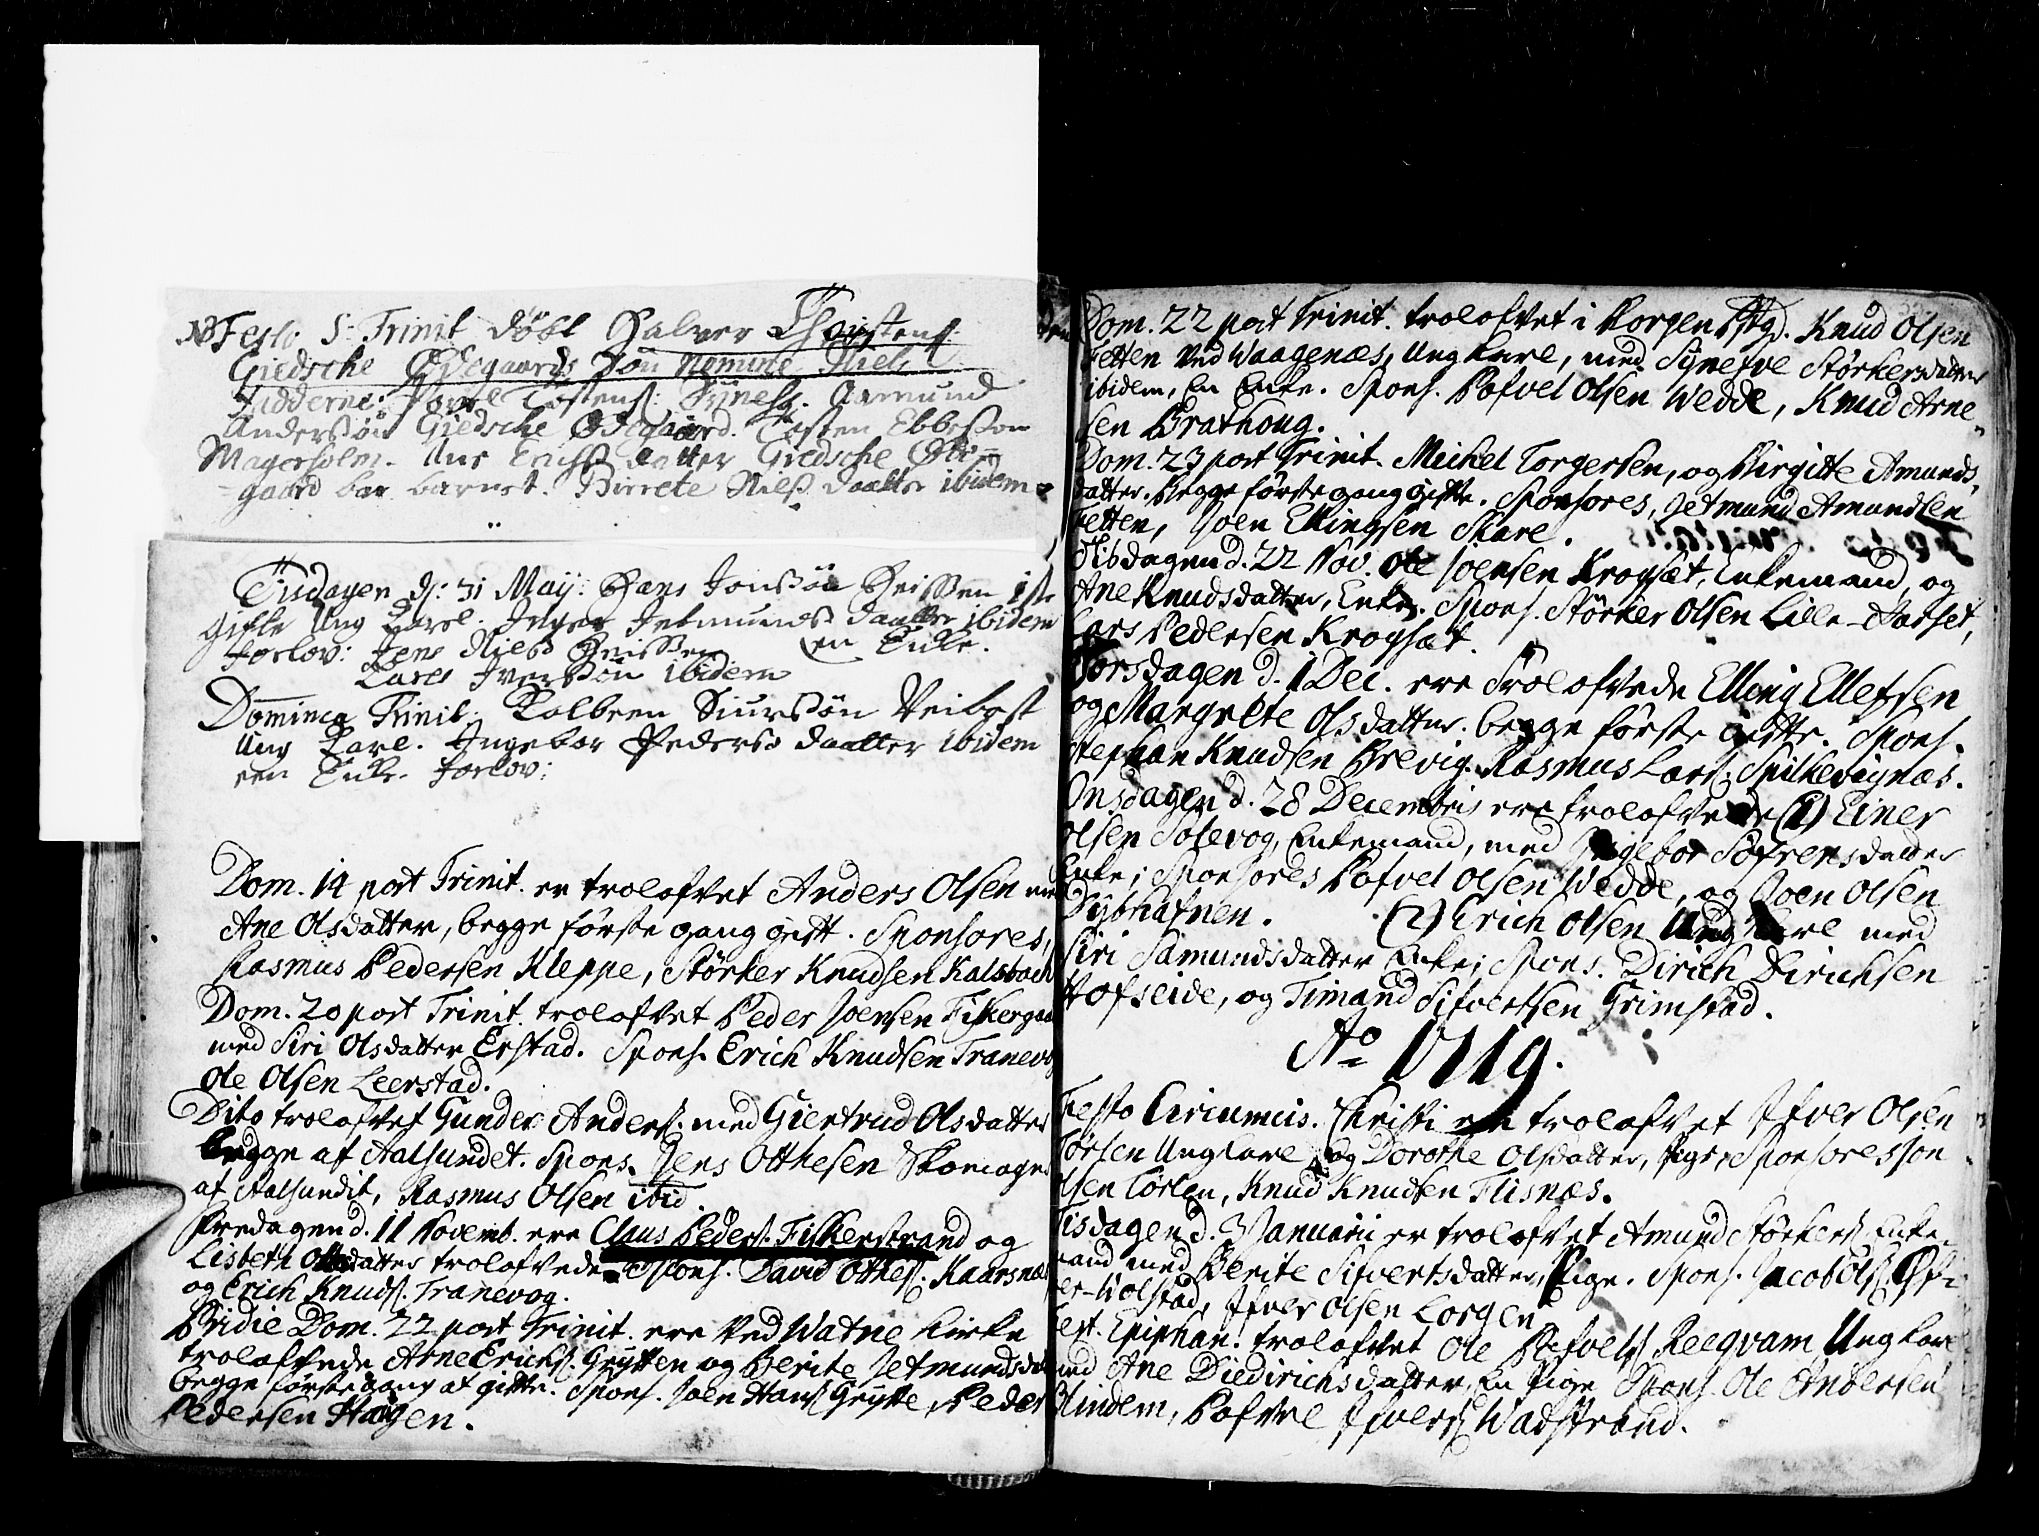 NB Festo S: Trinit døbt Halver Thorstens
Giedsche Ødegaards Søn Nomine Niels
Fadderne: Povel Tostens: Tuness. Aamund
Anderssøn Giedsche Ødegaard. Tosten Ebbesson
Magerholm. Ane Erichs daatter Giedsche Øde-
gaard bar barnet. Birrete Nils daatter ibidem
Tisdagen d: 31 Maij: Hans Jonssøn Heissen 1ste
gifte Ung Karl. Inger Jetmunds daatter ibidem
forlov: Jens Nilss Heissen en Enke.
Lares Iverssøn ibidem
Dominica Trinit: Kolbeen Siurssøn Veibust
Ung Karl. Ingebor Peders daatter ibidem
een Enke. forlov:
Dom. 14 post Trinit. er trolofvet Anders Olsen
Ane Olsdatter, begge første gang gift. Sponsores,
Rasmus Pedersen Kleppe, Størker Knudsen Kalsbach
Dom. 20 post Trinit. trolofvet Peder Joensen Fiskergaa
med Siri Olsdatter Erstad. Spons. Erich Knudsen Tranevog
Ole Olsen Leerstad.
Dito trolofvet Gunder Anders. med Giertrud Olsdatter
begge af Aalsundet. Spons. Jens Otthesen Skomager
af Aalsundit, Rasmus Olsen ibid.
Fredagen d. 11 Novemb. ere Claus Peders. Fiskerstrand og
Lisbeth Olsdatter trolofvede. Spons. David Othes. Kaarsnæs
og Erich Knuds. Tranevog.
Pridie Dom. 22 post Trinit. ere ved Watne Kirke
trolofvede Arne Erichs. Grytten og Berite Jetmundsdat
begge første gang at gifte. Spons. Joen Hans. Grytte, Peder
Pedersen Haagen.
Dom. 22 post Trinit. trolofvet i Borgen Knud Olsen
Fetten ved Waagenæs, Ung Karl, med Synefve Størkersdatter
ibidem, En Enke. Spons. Pofvel Olsen Wedde, Knud Arne-
sen Brathoug.
Dom. 23 post Trinit. Michel Torgersen, og Birgitte Amunds-
datter. begge første gang gifte. Sponsores, Jetmund Amundsen
Fetten, Joen Ellingsen Skare.
Tisdagen d. 22 Nov. Ole Joensen Krogsæt, Enkemand, og
Ane Knudsdatter, Enke. Spons. Størker Olsen Lille-Aarset,
Lars Pedersen Krogsæt.
Torsdagen d. 1 Dec. ere Trolofvede Elling Ellefsen
og Margrete Olsdatter. begge første gifte. Spons.
Stephan Knudsen Brevig. Rasmus Lars. Spilkevignæs.
Onsdagen d. 28 Decembris ere trolofvede (1) Einer
Olsen Solevog, Enkemand, med Ingebor Søfrensdatter
Enke; Sponsores Pofvel Olsen Wedde, og Joen Olsen
Dybhafnen. (2) Erich Olsen Ung Karl med
Siri Samundsdatter Enke; Spons. Dirich Dirichsen
Hofseide, og Timand Sifvertsen Grimstad.
Ao 1719.
Festo Circumcis. Christi er trolofvet Ifver Olsen
Tørlen Ungkarl, og Dorothe Olsdatter, Pige, Sponsores Jon
Olsen Tørlen, Knud Knudsen Flisnæs.
Tisdagen d. 3 Januarii er trolofvet Amund Størkers. Enke-
mand med Berite Sifvertsdatter, Pige. Spons. Jacob Ols. Øf-
ver-Wolstad, Ifver Olsen Lorgen
Fest. Epiphan. trolofvet Ole Pofvels. Reeqvam Ung Karl
med Ane Diedirichsdatter, En Pige Spons. Ole Andersen
Blindem, Pofvel Ifvers. Wadstrand.